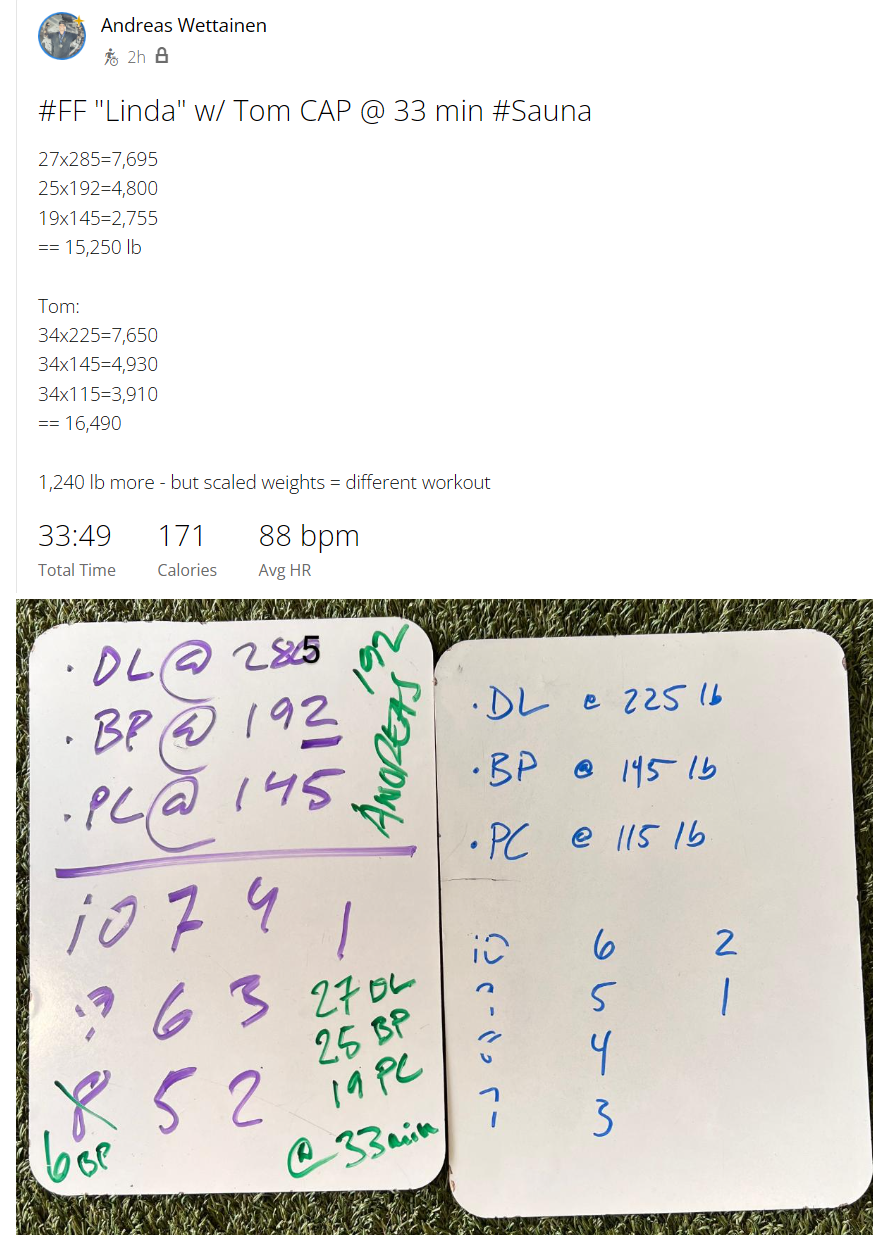 Andreas Wettainen
2h
#FF "Linda" w/ Tom CAP @ 33 min #Sauna
27x285=7,695
25x192=4,800
19x145=2,755
== 15,250 lb
Tom:
34x225=7,650
34x145=4,930
34x115=3,910
== 16,490
1,240 lb more - but scaled weights = different workout
33:49 171 88 bpm
Total Time Calories Avg HR
· DL @ 285
· BP @ 192
· PC @ 145
ANDREAS 192
10 7 4 1
6 3
8 5 2
27 DL
25 BP
19 PC
6 BP
@ 33min
· DL @ 225 lb
· BP @ 145 lb
· PC @ 115 lb
10 6 2
5 1
4
3